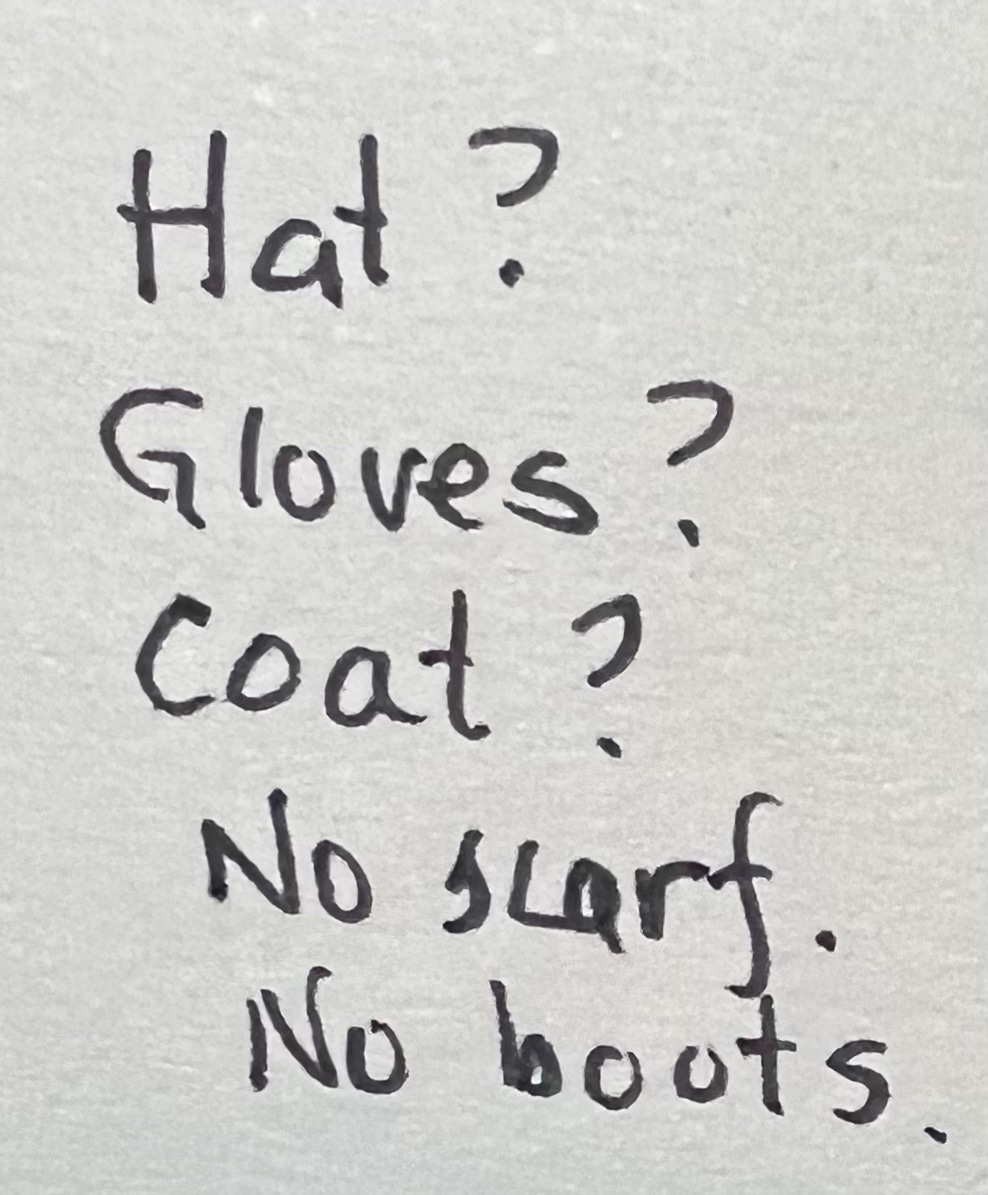 Hat?
Gloves?
Coat?
No scarf.
No boots.